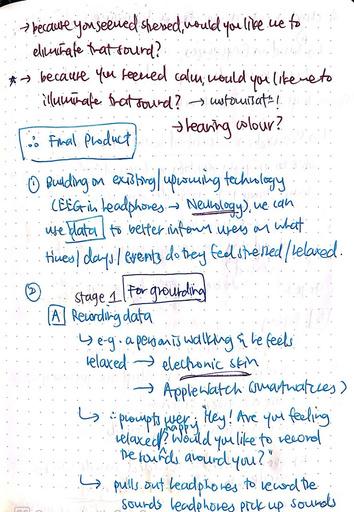 → because you seemed stressed, would you like me to
eliminate that sound?
* → because you seemed calm, would you like me to
illuminate that sound? →
→ hearing colour?
∴ Final Product
① Building on existing/upcoming technology
(EEG in headphones → Neurology), we can
use data to better inform users on what
times/days/events do they feel stressed/relaxed.
② stage 1 For grounding
A Recording data
↳ e.g. a person is walking & he feels
relaxed → electronic skin
→ Apple Watch (smartwatches)
↳ ∴ prompts user: "Hey! Are you feeling
relaxed/happy? Would you like to record
the sounds around you?"
↳ pulls out headphones to record the
sounds headphones pick up sounds